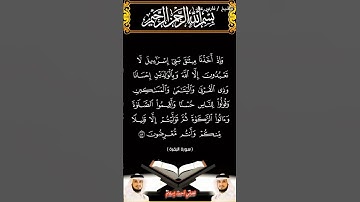 بسم الله الرحمن الرحيم
وَإِذْ أَخَذْنَا مِيثَٰقَ بَنِىٓ إِسْرَٰٓءِيلَ لَا
تَعْبُدُونَ إِلَّا ٱللَّهَ وَبِٱلْوَٰلِدَيْنِ إِحْسَانًا
وَذِى ٱلْقُرْبَىٰ وَٱلْيَتَٰمَىٰ وَٱلْمَسَٰكِينِ
وَقُولُوا۟ لِلنَّاسِ حُسْنًا وَأَقِيمُوا۟ ٱلصَّلَوٰةَ
وَءَاتُوا۟ ٱلزَّكَوٰةَ ثُمَّ تَوَلَّيْتُمْ إِلَّا قَلِيلًا
مِّنكُمْ وَأَنتُم مُّعْرِضُونَ
(سورة البقرة)